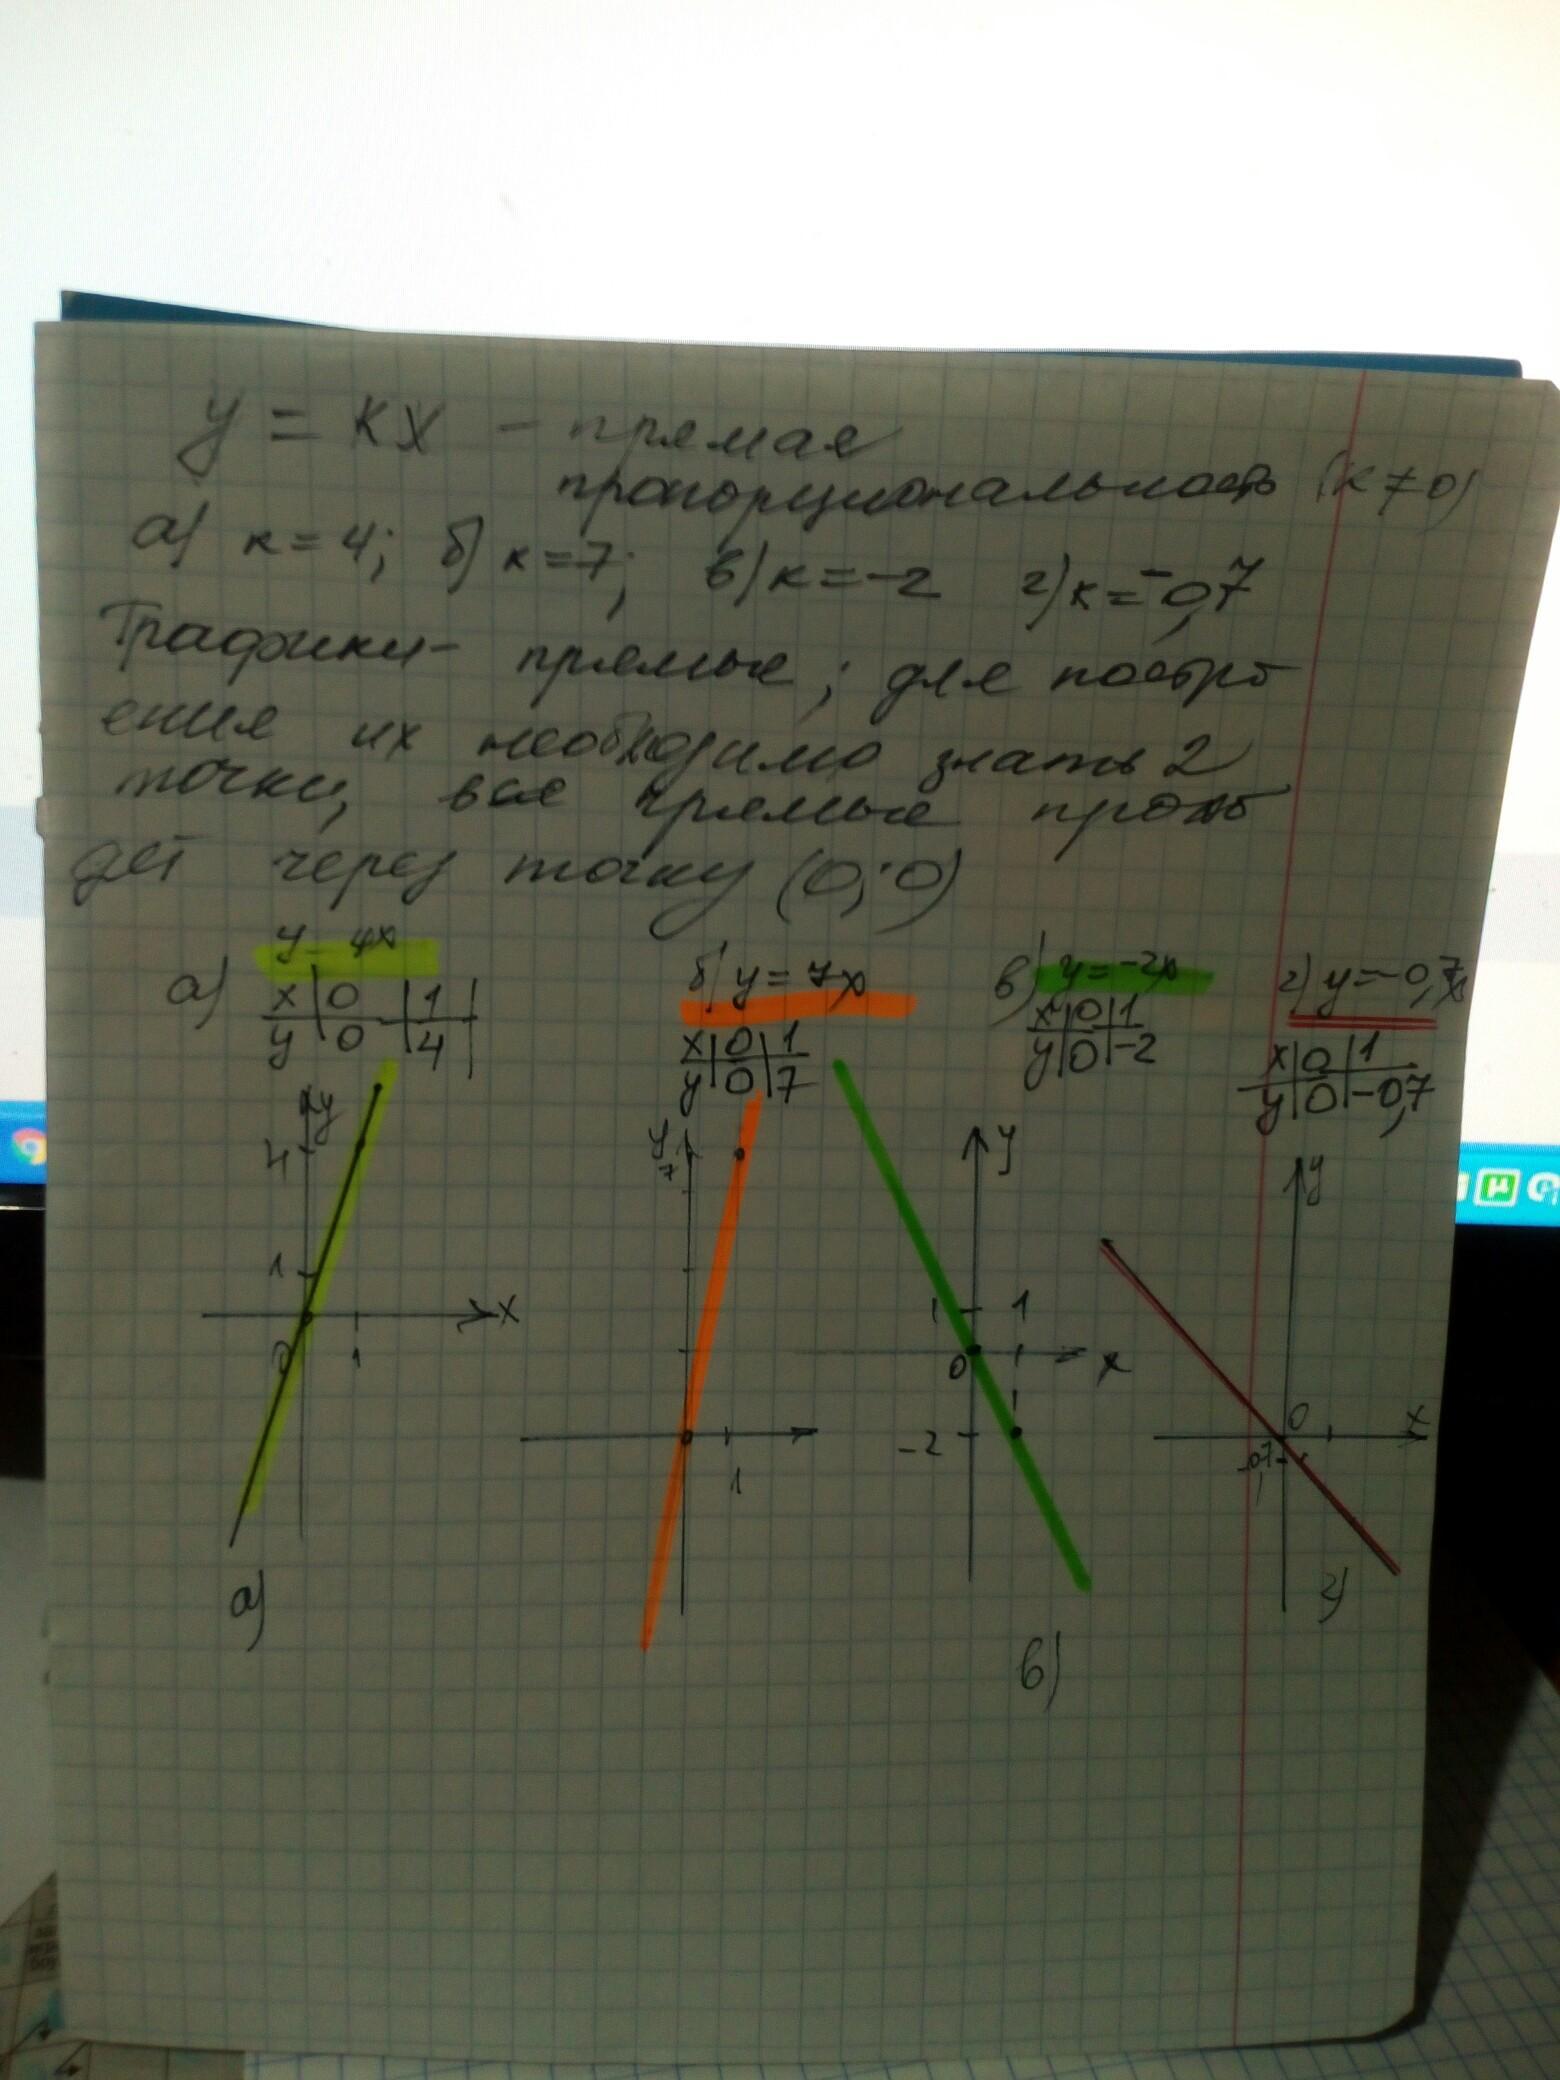 y = кx - прямая
пропорциональность (к≠0)
а) к=4; б) к=7; в) к=-2 г) к=-0,7
Графики - прямые; для постро
ения их необходимо знать 2
точки, все прямые прохо
дет через точку (0;0)
y = 4x
б) y = 7x
в) y = -2x
г) y = -0,7x
а) x | 0 | 1
y | 0 | 4
x | 0 | 1
y | 0 | 7
x | 0 | 1
y | 0 | -2
x | 0 | 1
y | 0 | -0,7
y
4
1
x
0 1
а)
y
7
1
y
1 1
0
x
-2
в)
y
0
x
-0,7
г)